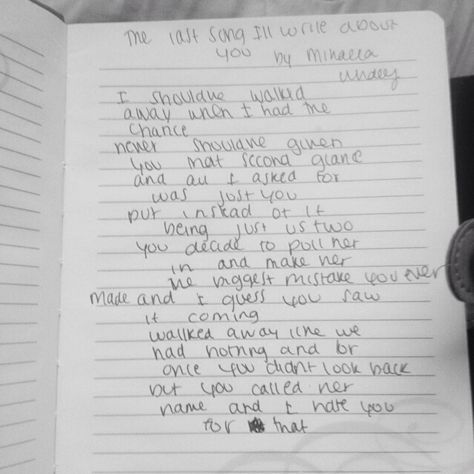 The last song I'll write about
you by Mihaela
I shouldve walked
away when I had the
chance
never shouldve given
you that second glance
and all I asked for
was just you
but instead of it
being just us two
you decide to pull her
in and make her
the biggest mistake you ever
made and I guess you saw
it coming
wallked away like we
had nothing and for
once you didnt look back
but you called her
name and I hate you
for that